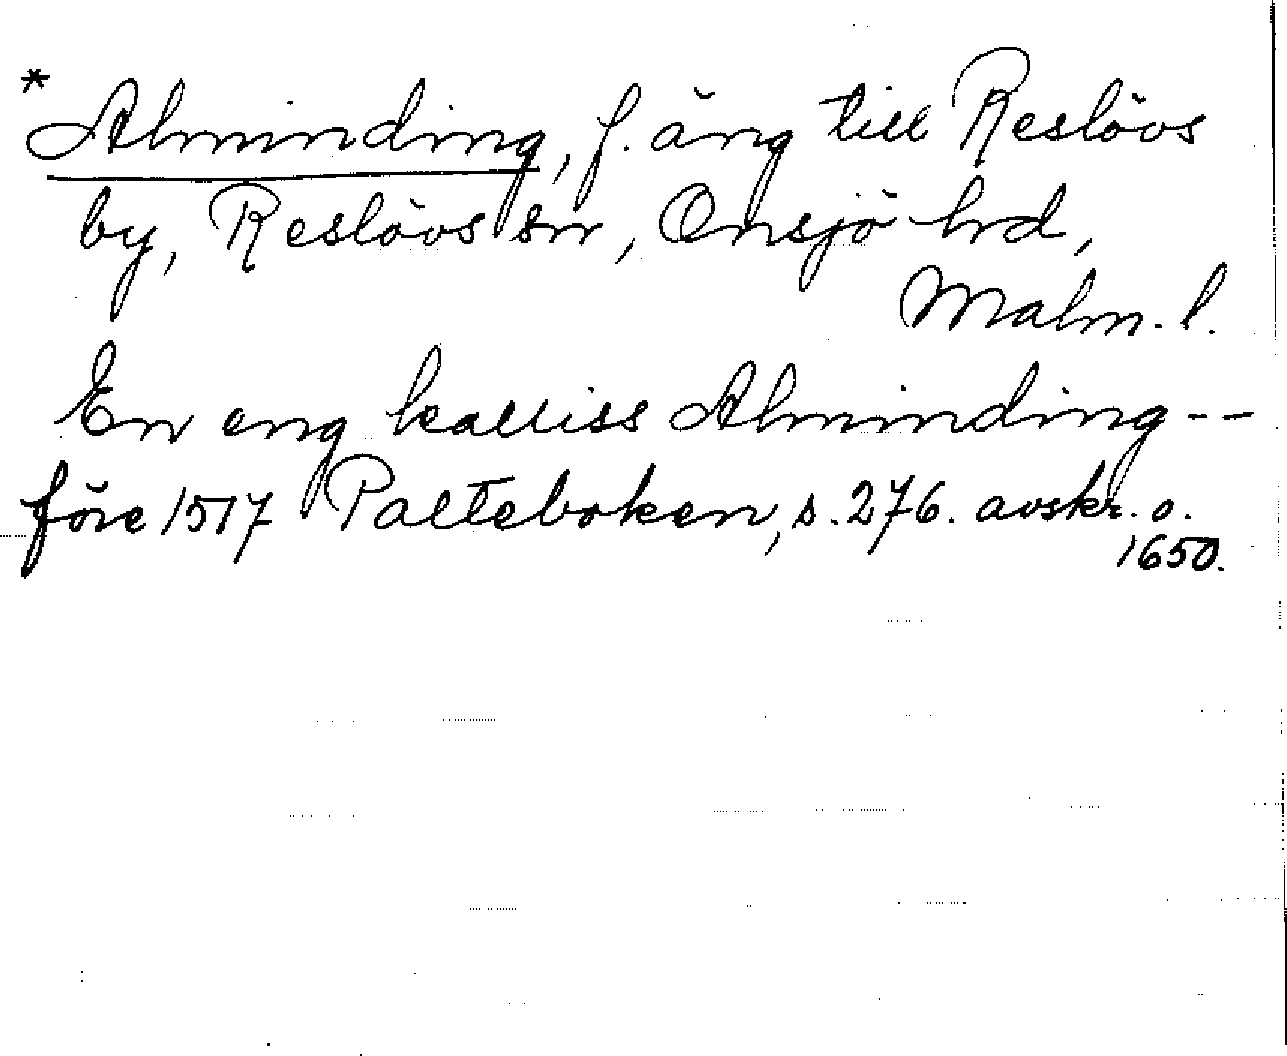 * Alminding, f. äng till Reslövs
by, Reslövs sn, Onsjö hd,
Malm. l.
En eng kalliss Alminding --
före 1517 Palteboken, s. 276. avskr. o.
1650.